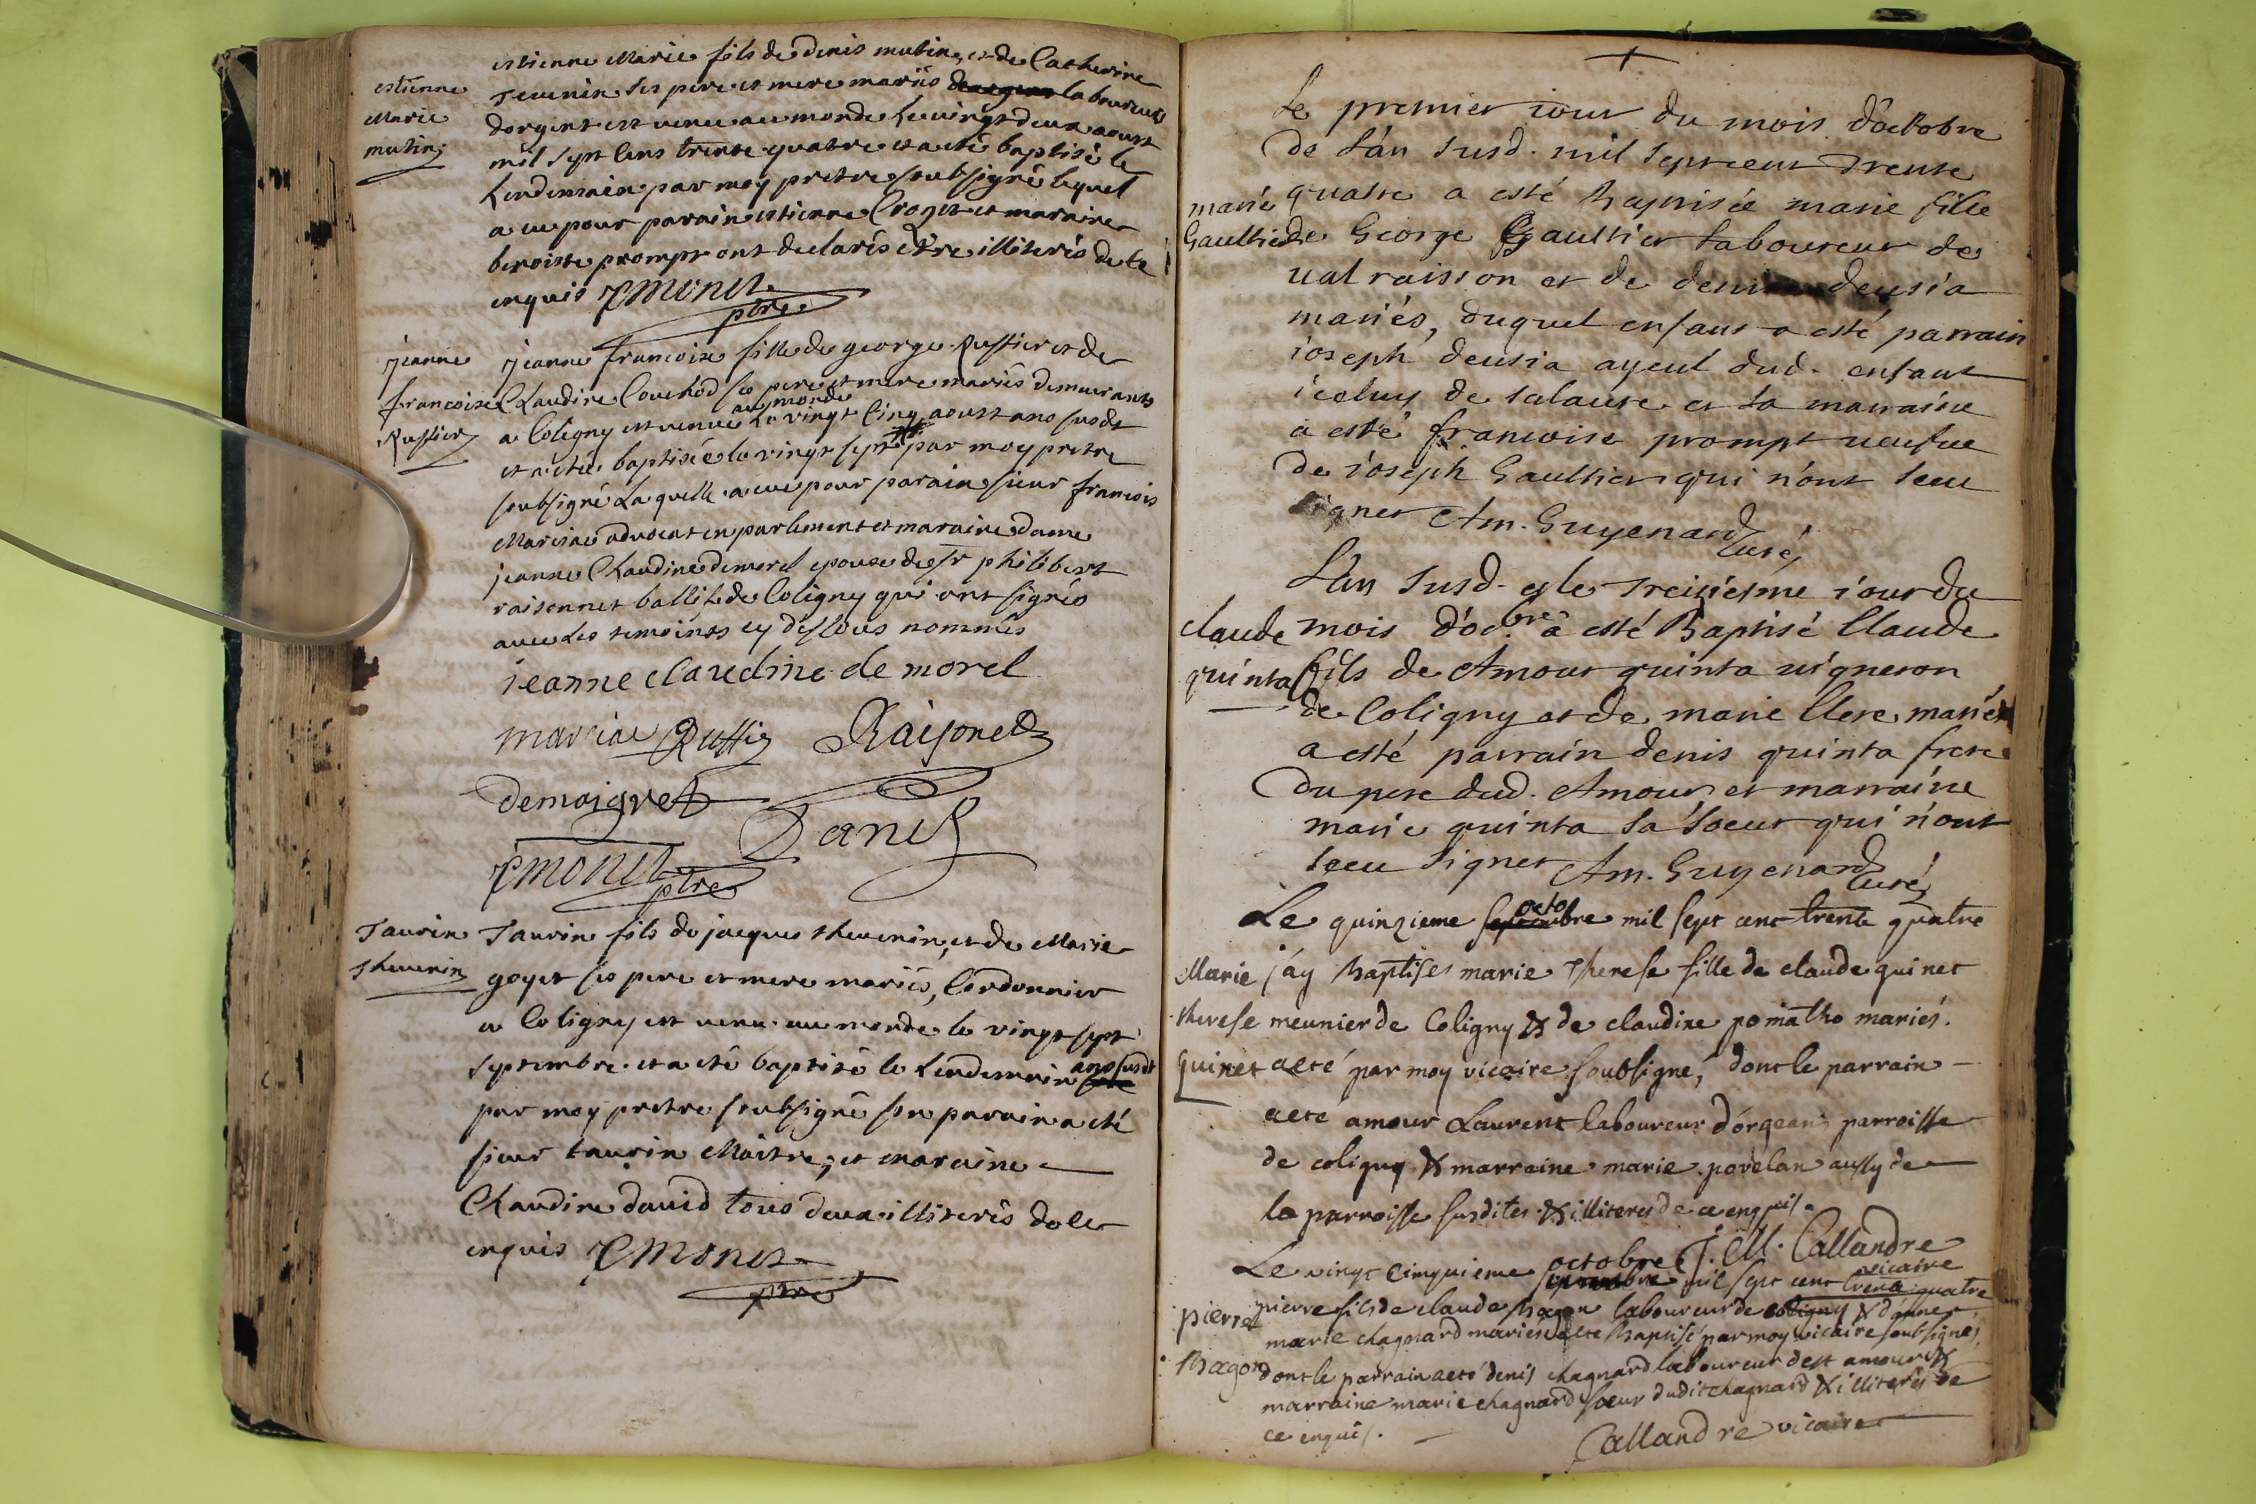 estienne Marie fils de denis mutin, et de Catherine
estienne
Marie
mutin
Teuenin ses pere et mere mariés laboureur
dorgent est venu au monde le vingt deux aoust
mil sept cens trente quatre et a eté baptisé le
Lendemain par moy pretre soubsigné lequel
a eu pour parain estienne Crozet et maraine
benoiste prompt ont declarés etre illiterés de ce
enquis Emonet
ptre
jeanne
francoise
Ruffier
jeanne francoise fille de george Ruffier et de
Claudine Couchod ses pere et mere mariés demeurants
a Coligny est venue au monde Le vingt Cinq aoust ano susdt
et a eté baptisée le vingt sept par moy pretre
soubsigné Laquelle a eue pour parain sieur francois
Mariae advocat en parlement et maraine dame
jeanne Claudine demorel epouse de sr philibert
raisonnet baillif de Coligny qui ont signés
avec Les temoins cy dessous nommés
jeanne claudine de morel
Ruffier Raisonet
demoigret
Danis
Emonet
ptre
Taurin
thevenin
Taurin fils de jacques thevenin, et de Marie
goyet ses pere et mere mariés, Cordonnier
a Coligny est venu au monde le vingt sept
septembre et a eté baptisé le Lendemain ano susdt
par moy pretre soubsigné son parain a eté
sieur taurin Maitre, et maraine
Claudine david tous deux illiterés de ce
enquis Emonet
ptre
Le premier iour du mois d'octobre
de L'an susd. mil septcent trente
marie
Gaultier
quatre a esté baptisée marie fille
de George Gaultier Laboureur de
ual raisson et de denise deusia
mariés, duquel enfant a esté parrain
ioseph deusia ayeul dud. enfant
icelluy de salaure et la marraine
a esté francoise prompt ueufue
de ioseph Gaultier qui n'ont sceu
signer Am. Guyenard
curé
L'an susd. et le treisiesme iour du
claude
quinta
mois d'octbre a esté Baptisé Claude
fils de Amour quinta uigneron
de Coligny et de marie Clere mariés
a esté parrain denis quinta frere
du pere dud. Amour et marraine
marie quinta sa soeur qui n'ont
sceu signer Am. Guyenard
curé
Le quinzieme octobre mil sept cent trente quatre
Marie
therese
quinet
j'ay baptisés marie therese fille de claude quinet
meunier de Coligny & de claudine pomatho mariés.
aeté par moy vicaire soubsigné, dont le parrain
aeté amour Laurent laboureur d'orgean parroisse
de coligny & marraine marie povelan aussy de
la parroisse susdites & illiteres de ce enquise
J. M. Callandre
vicaire
Le vingt cinquieme octobre mil sept cent trente quatre
pierre
Bagon
pierre fils de claude Bagon laboureur de coligny & d'anne
marie chagnard mariés aeté baptisé par moy vicaire soubsigné,
dont le parrain aeté denis chagnard laboureur dest amour &
marraine marie chagnard soeur dudit chagnard & illiterés de
ce enquis.
Callandre vicaire